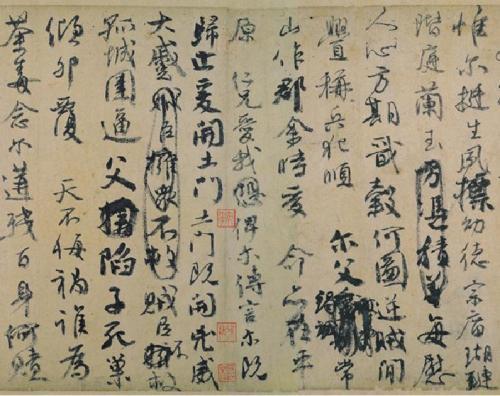 惟尔挺生夙標幼德宗廟瑚璉
階庭蘭玉方憑積善每慰
人心方期戩穀何圖逆賊間
釁稱兵犯順 尔父竭誠常
山作郡余時受 命亦在平
原 仁兄愛我恐俾尔傳言尔既
歸止爰開土門土門既開凶威
大蹙賊臣擁衆不救賊臣不救
孤城圍逼父擒陷子死巢
傾卵覆 天不悔禍誰為
荼毒念尔遘殘百身何贖